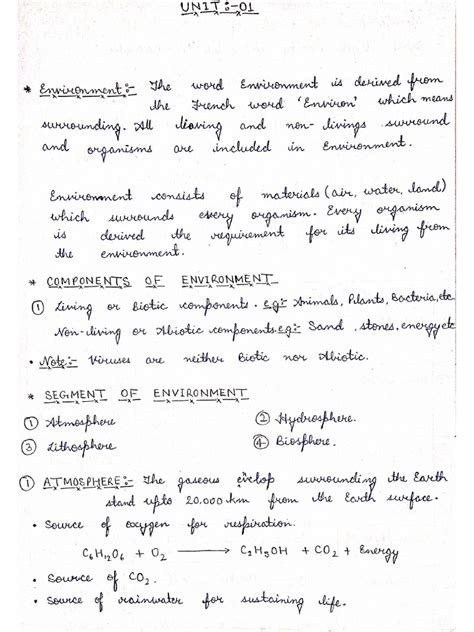 UNIT:-01
* Environment:- The word Environment is derived from
the French word 'Environ' which means
surrounding. All liaving and non-livings surround
and organisms are included in Environment.
Environment consists of materials (air, water, land)
which surrounds every organism. Every organism
is derived the requirement for its living from
the environment.
* COMPONENTS OF ENVIRONMENT
① Living or Biotic components. e.g:- Animals, Plants, Bacteria, etc
Non-living or Abiotic components. e.g:- Sand, stones, energy etc
• Note:- Viruses are neither Biotic nor Abiotic.
* SEGMENT OF ENVIRONMENT
① Atmosphere ② Hydrosphere.
③ Lithosphere ④ Biosphere.
① ATMOSPHERE:- The gaseous surrounding the Earth
stand upto 20,000 km from the Earth surface.
• Source of oxygen for respiration.
C₆H₁₂O₆ + O₂ → C₂H₅OH + CO₂ + Energy
• Source of CO₂.
• Source of rainwater for sustaining life.